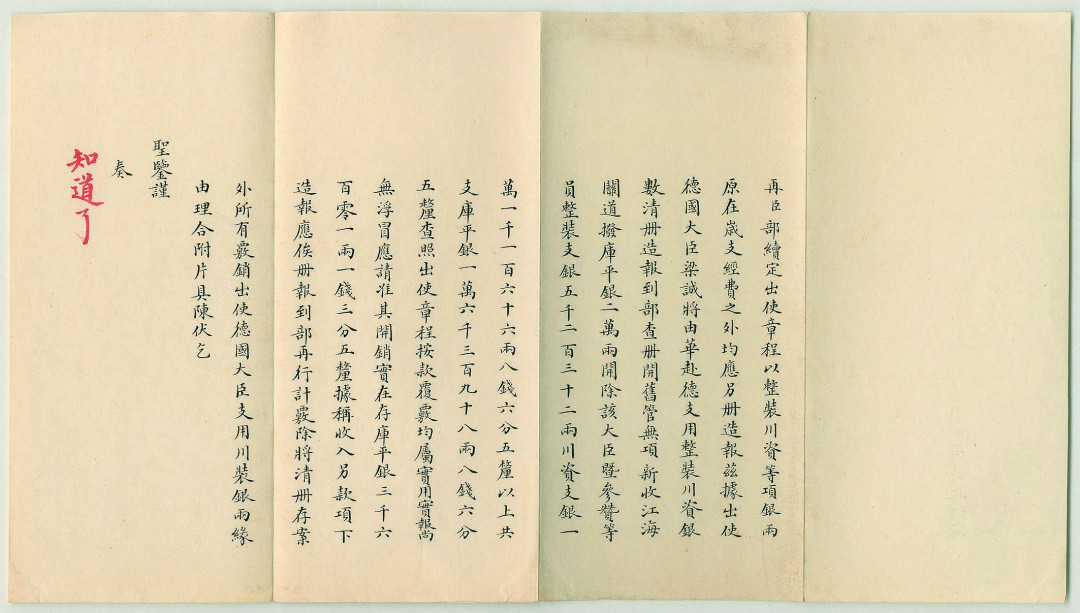 再臣部續定出使章程以整裝川資等項銀兩
原在歲支經費之外均應另册造報茲據出使
德國大臣梁誠將由華赴德支用整裝川資銀
數清册造報到部查册開舊管無項新收江海
關道撥庫平銀二萬兩開除該大臣暨參贊等
員整裝支銀五千二百三十二兩川資支銀一
萬一千一百六十六兩八錢六分五釐以上共
支庫平銀一萬六千三百九十八兩八錢六分
五釐查照出使章程按款覆覈均屬實用實報尚
無浮冒應請准其開銷實在存庫平銀三千六
百零一兩一錢三分五釐據稱收入另款項下
造報應俟册報到部再行計覈除將清册存案
外所有覈銷出使德國大臣支用川裝銀兩緣
由理合附片具陳伏乞
聖鑒謹
奏
知道了